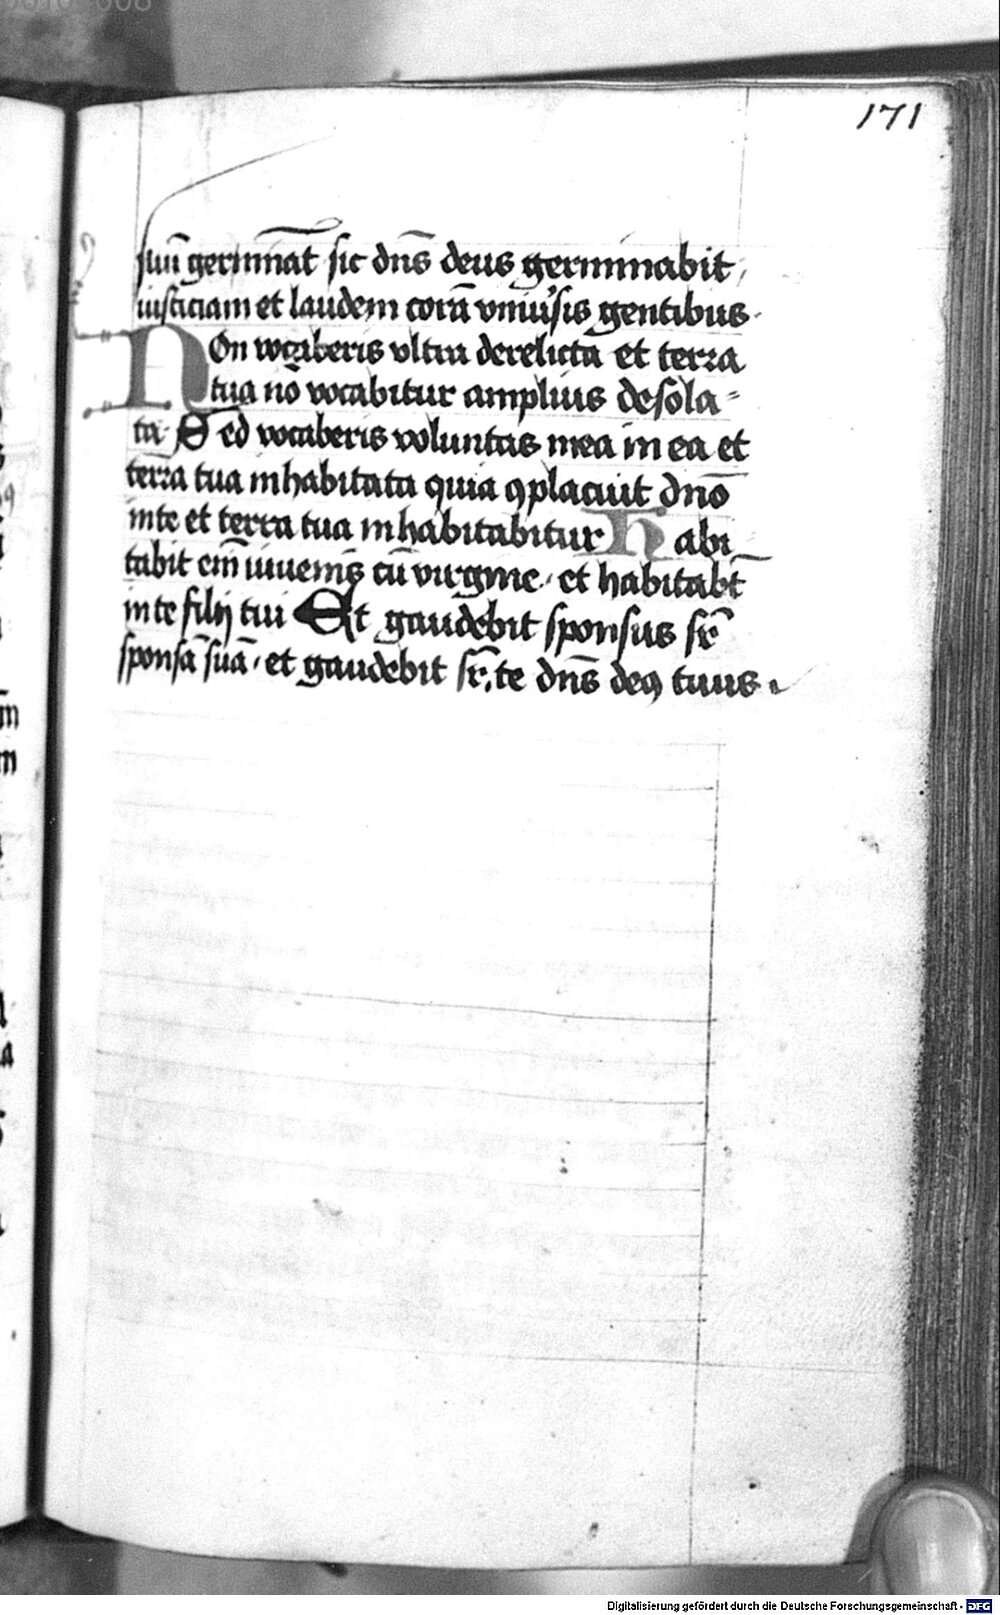 171
suū germīat sic dn̄s deus germinabit
iusticiam et laudem corā vniu'sis gentibus
Non vocaberis vltra derelicta et terra
tua nō vocabitur amplius desola⸗
ta Sed vocaberis voluntas mea in ea et
terra tua inhabitata quia ꝯplacuit dn̄o
inte et terra tua inhabitabitur Habi
tabit em̄ iuuenis cū virgine et habitabt̄
inte filij tui Et gaudebit sponsus sr̄
sponsā suā et gaudebit sr̄ te dn̄s deꝯ tuus
Digitalisierung gefördert durch die Deutsche Forschungsgemeinschaft - DFG